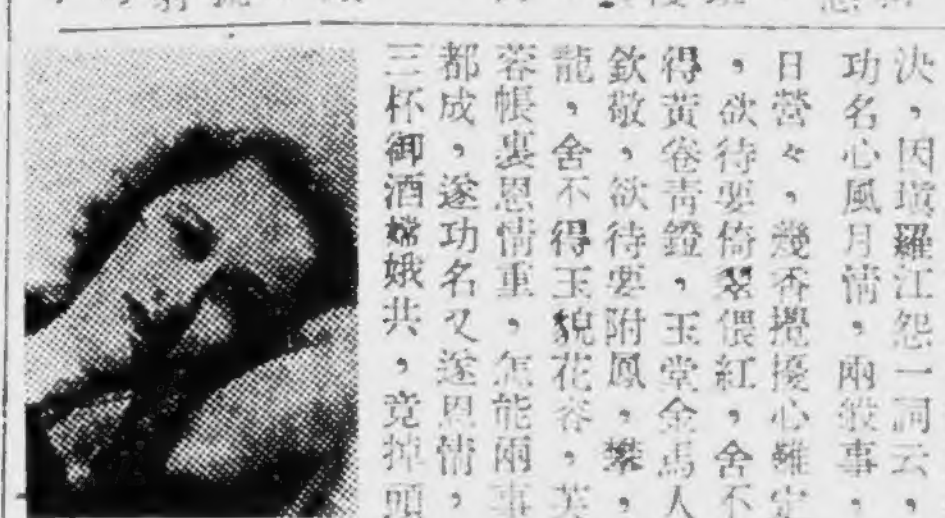 決，因塡羅江怨一詞云，
功名心風月情，兩般事，
日營々，幾番攪擾心難定
，欲待要倚翠偎紅，舍不
得黃卷青鐙，玉堂金馬人
欽敬，欲待要附鳳，攀，
龍，舍不得玉貌花容，芙
蓉帳裏恩情重，怎能兩事
都成，遂功名又遂恩情，
三杯御酒嫦娥共，竟掉頭